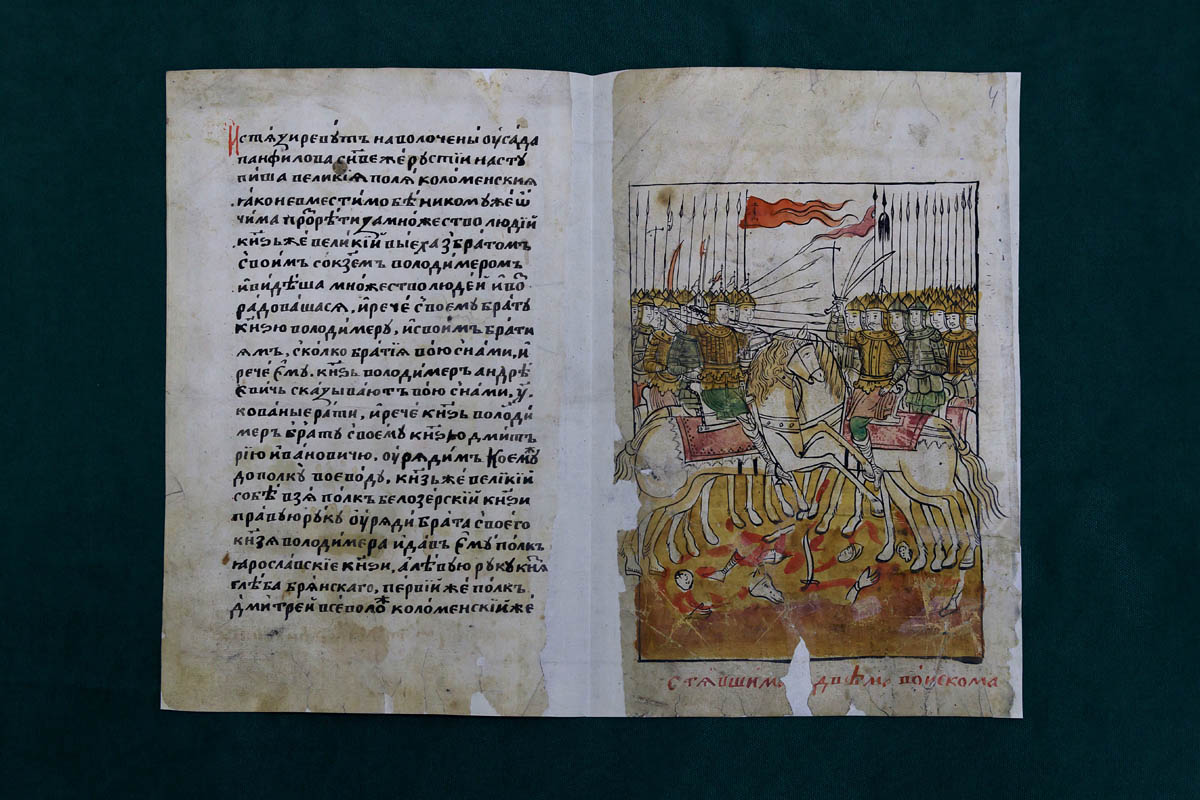 и стѧзи ревꙋтъ наволочены ѹ сада
панфилова сн҃ве же рꙋстїи насту
пиша великїѧ полѧ коломенскиѧ
ꙗко невместимо бѣ никомуже ѿ
чима прозрети за множество людїй
кнѧзь же великїй выеха з братомъ
своимъ со кнземъ володимеромъ
и видѣша множество людей и во
радовашасѧ, и рече своему брату
кнѧзю володимеру, и своимъ брати
ѧмъ, сколко братїѧ вою снами, и
рече ему. кнѧзь володимеръ андрѣ
евичь сказываютъ вою снами, у҃.
кованые рати, и рече кнѧзь володи
меръ брату своему кнѧзю дмит
рїю ивановичю, ѹрѧдимъ коемꙋ
до полку воеводу, кнѧзь же великїй
собѣ взѧ полкъ белозерскїй кнѧзи
правую руку ѹрѧди брата своего
кнѧзѧ володимера и давъ ему полкъ
ꙗрославскїе кнѧзи, а лѣвую руку кнѧзѧ
глѣба брѧнскаго, первїй же полкъ
дмитрей всеволож коломенскїй же
4
ставшима двѣма воискома